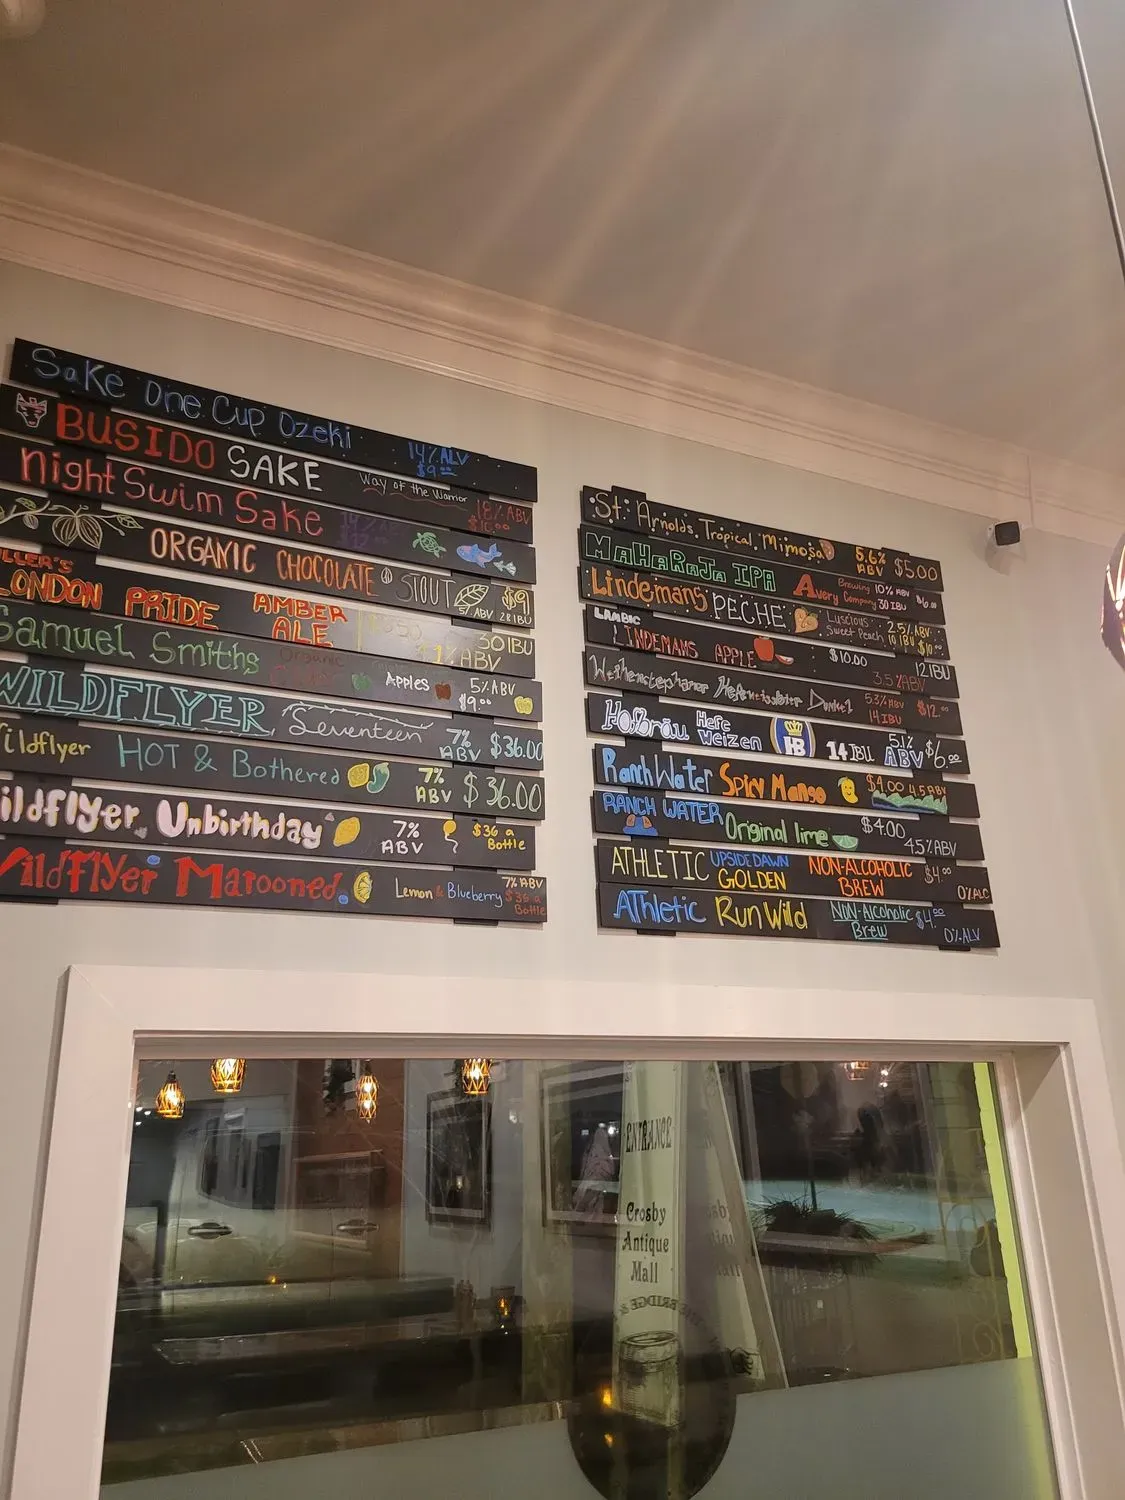 Sake One Cup Ozeki 14% ALV $9.00
BUSIDO SAKE Way of the Warrior 18% ABV $10.00
Night Swim Sake
ORGANIC CHOCOLATE STOUT $9 ABV IBU
LONDON PRIDE AMBER ALE 30 IBU ABV
Samuel Smiths Organic Apples 5% ABV $9.00
WILDFLYER Seventeen 7% ABV $36.00
ildflyer HOT & Bothered 7% ABV $36.00
ildflyer Unbirthday 7% ABV $36 a Bottle
Wildflyer Marooned Lemon & Blueberry 7% ABV $36 a Bottle
St. Arnolds Tropical Mimosa 5.6% ABV $5.00
MAHARAJA IPA Avery Brewing Company 10% ABV 30 IBU $6.00
Lindemans PECHE Luscious Sweet Peach 2.5% ABV 10 IBU $10.00
LAMBIC LINDEMANS APPLE $10.00 3.5% ABV 12 IBU
Weihenstephaner Hefeweissbier Dunkel 5.3% ABV 14 IBU $12.00
Hofbräu Hefe Weizen HB 14 IBU 5.1% ABV $6.00
Ranch Water Spicy Mango $4.00 4.5 ABV
RANCH WATER Original lime $4.00 4.5% ABV
ATHLETIC UPSIDE DAWN GOLDEN NON-ALCOHOLIC BREW $4.00 0% ALC
AThletic Run Wild NON-Alcoholic Brew $4.00 0% ALV
ENTRANCE
Crosby
Antique
Mall